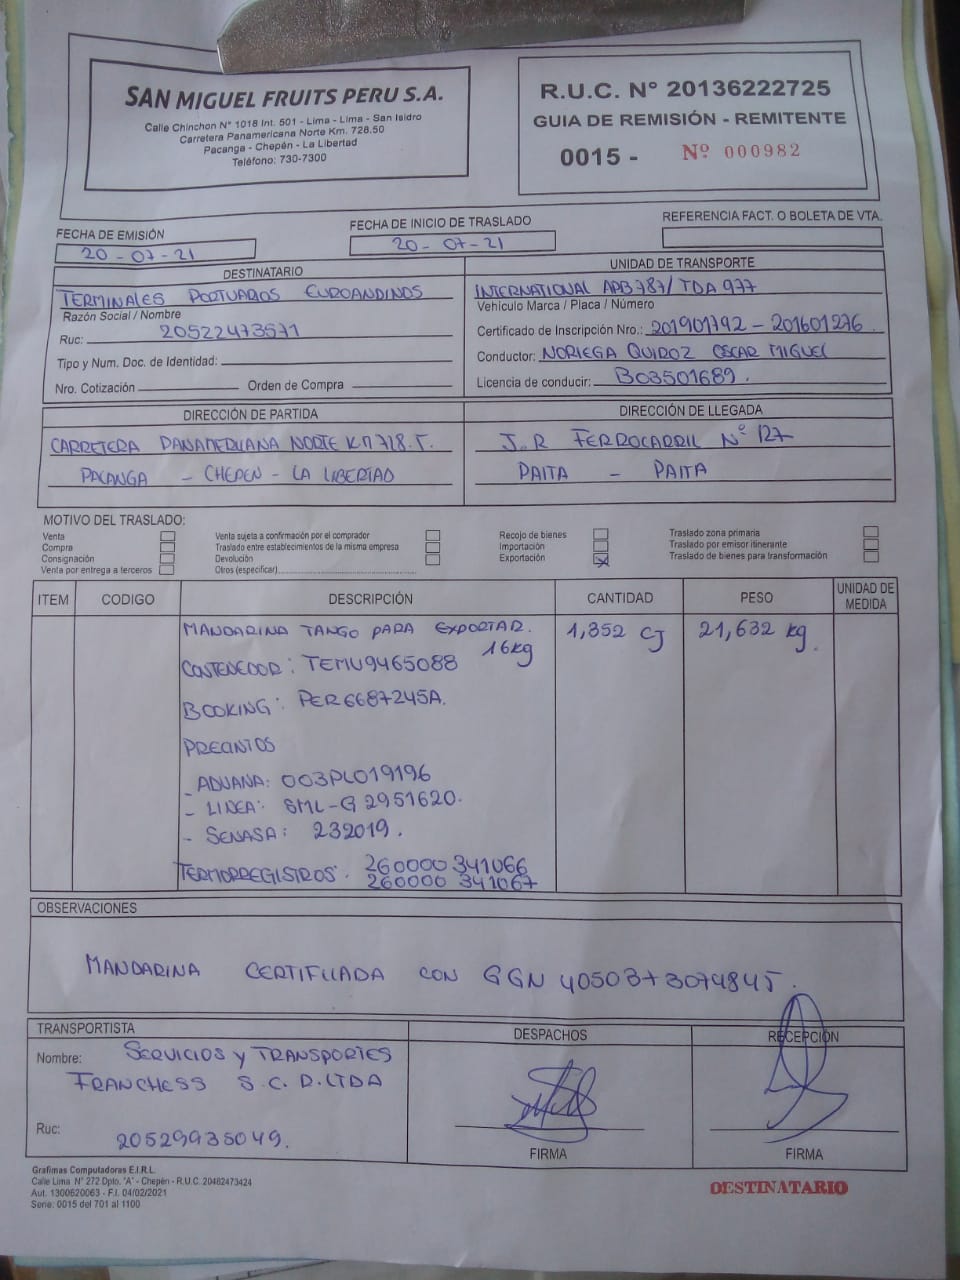 SAN MIGUEL FRUITS PERU S.A.
Calle Chinchon N° 1018 Int. 501 - Lima - Lima - San Isidro
Carretera Panamericana Norte Km. 728.50
Pacanga - Chepén - La Libertad
Teléfono: 730-7300
R.U.C. N° 20136222725
GUIA DE REMISIÓN - REMITENTE
0015 - Nº 000982
FECHA DE EMISIÓN
20 - 07 - 21
FECHA DE INICIO DE TRASLADO
20 - 07 - 21
REFERENCIA FACT. O BOLETA DE VTA.
DESTINATARIO
TERMINALES PORTUARIOS EUROANDINOS
Razón Social / Nombre
Ruc: 20522473571
Tipo y Num. Doc. de Identidad:
Nro. Cotización Orden de Compra
UNIDAD DE TRANSPORTE
INTERNATIONAL APB787/ TDA 977
Vehículo Marca / Placa / Número
Certificado de Inscripción Nro.: 201901792 - 201601276
Conductor: NORIEGA QUIROZ OSCAR MIGUEL
Licencia de conducir: B03501689.
DIRECCIÓN DE PARTIDA
CARRETERA PANAMERICANA NORTE KM 728.5
PACANGA - CHEPEN - LA LIBERTAD
DIRECCIÓN DE LLEGADA
J.R FERROCARRIL N° 127
PAITA - PAITA
MOTIVO DEL TRASLADO:
Venta
Compra
Consignación
Venta por entrega a terceros
Venta sujeta a confirmación por el comprador
Traslado entre establecimientos de la misma empresa
Devolución
Otros (especificar)
Recojo de bienes
Importación
Exportación X
Traslado zona primaria
Traslado por emisor itinerante
Traslado de bienes para transformación
ITEM CODIGO DESCRIPCIÓN CANTIDAD PESO UNIDAD DE MEDIDA
MANDARINA TANGO PARA EXPORTAR. 1,352 CJ 21,632 kg.
16kg
CONTENEDOR: TEMU9465088
BOOKING: PER6687245A.
PRECINTOS
- ADUANA: 003PL019196
- LINEA: SML-G 2951620.
- SENASA: 232019.
TERMORREGISTROS: 260000 341066
260000 341067
OBSERVACIONES
MANDARINA CERTIFICADA CON GGN 4050373074845.
TRANSPORTISTA
Nombre: SERVICIOS Y TRANSPORTES
FRANCHESS S.C.R.LTDA
Ruc: 20529935049.
DESPACHOS
FIRMA
RECEPCIÓN
FIRMA
Grafimas Computadoras E.I.R.L.
Calle Lima N° 272 Dpto. "A" - Chepén - R.U.C. 20482473424
Aut. 1300620063 - F.I. 04/02/2021
Serie: 0015 del 701 al 1100
DESTINATARIO